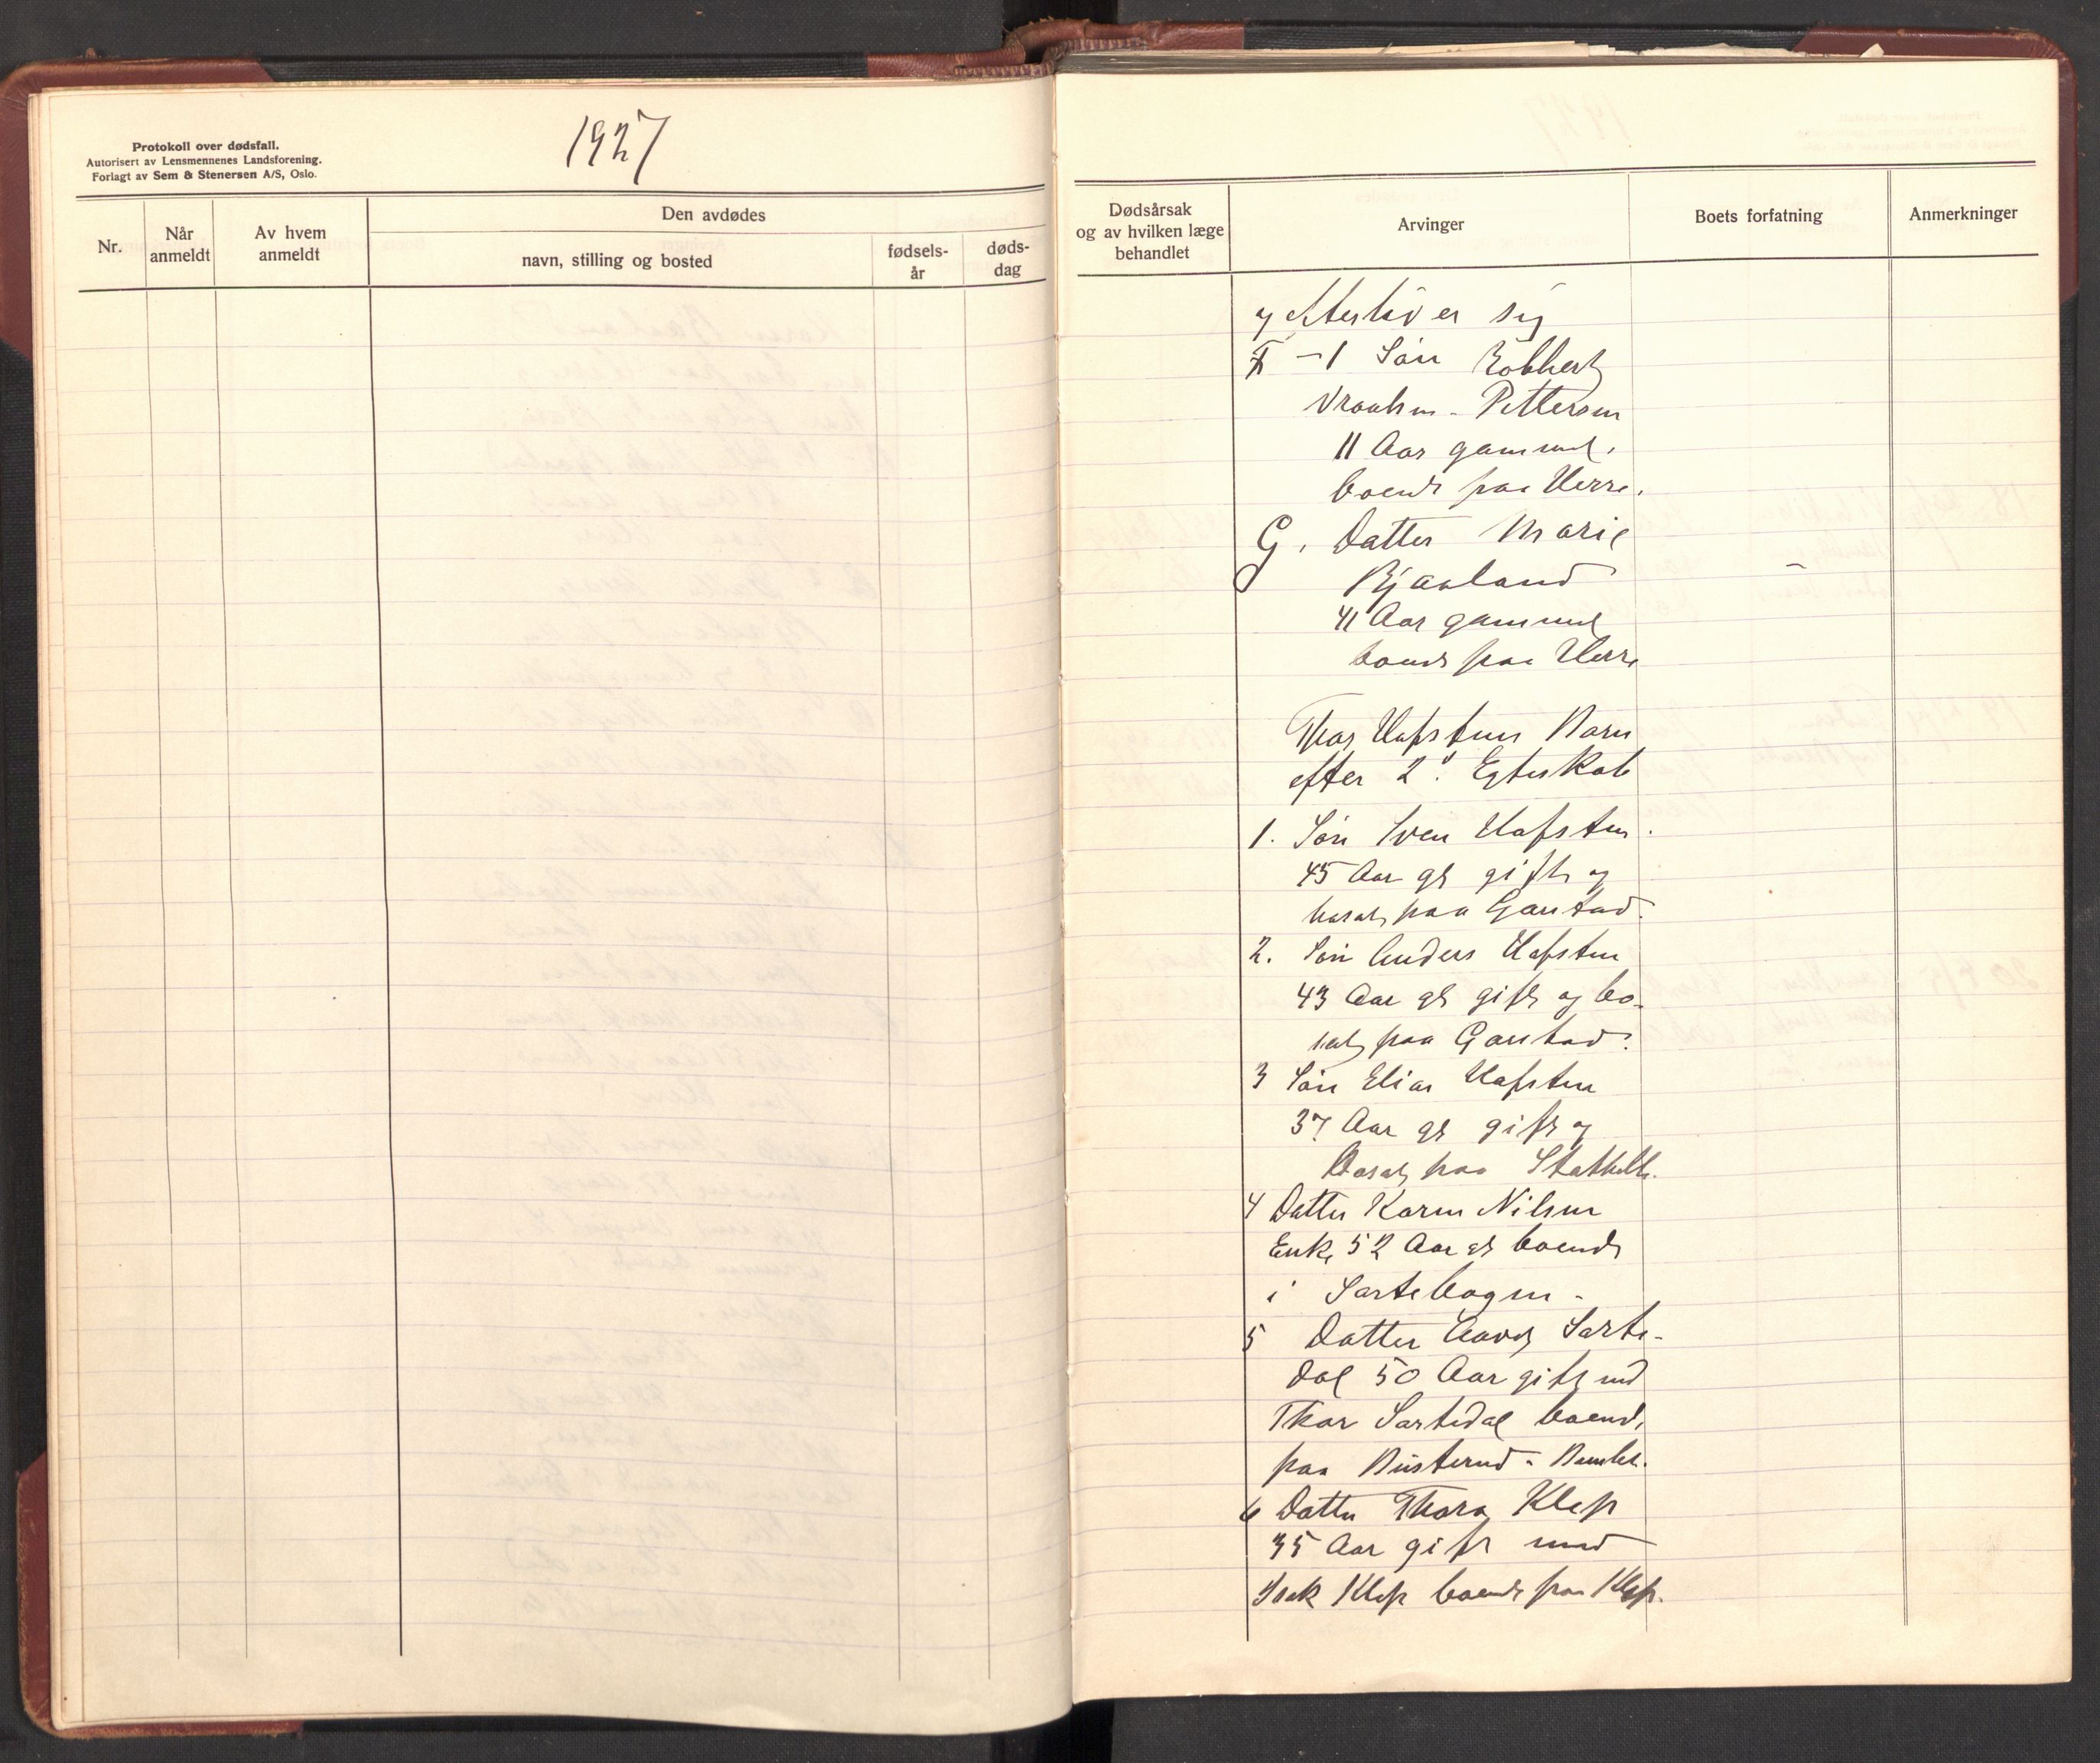 Protokoll over dødsfall.
Autorisert av Lensmennenes Landsforening.
Forlagt av Sem & Stenersen A/S, Oslo.
1927
Nr.
Når
anmeldt
Av hvem
anmeldt
Den avdødes
navn, stilling og bosted
fødsels-
år
døds-
dag
Dødsårsak
og av hvilken læge
behandlet
Arvinger
Boets forfatning
Anmerkninger
og efterlever sig
1 Søn Robbert
Pettersen
11 Aar gammel.
boende paa Herre.
G. Datter Marie
Bjaaland
41 Aar gammel
boende paa Herre
Thor Hafstens Barn
efter 2. Egteskab
1. Søn Sven Hafsten.
45 Aar gl gift og
bosat paa Garstad.
2. Søn Anders Hafsten
43 Aar gl gift og bo-
sat paa Garstad.
3 Søn Elias Hafsten
37 Aar gl gift og
Bosat paa Stathelle.
4 Datter Karen Nilsen
Enke 52 Aar gl boende
i Sartebogen -
5 Datter Sarte-
dal 50 Aar gift med
Thor Sartedal boende
paa - Bamble.
6 Datter Thora Klep
35 Aar gift med
Klep boende paa Klep.